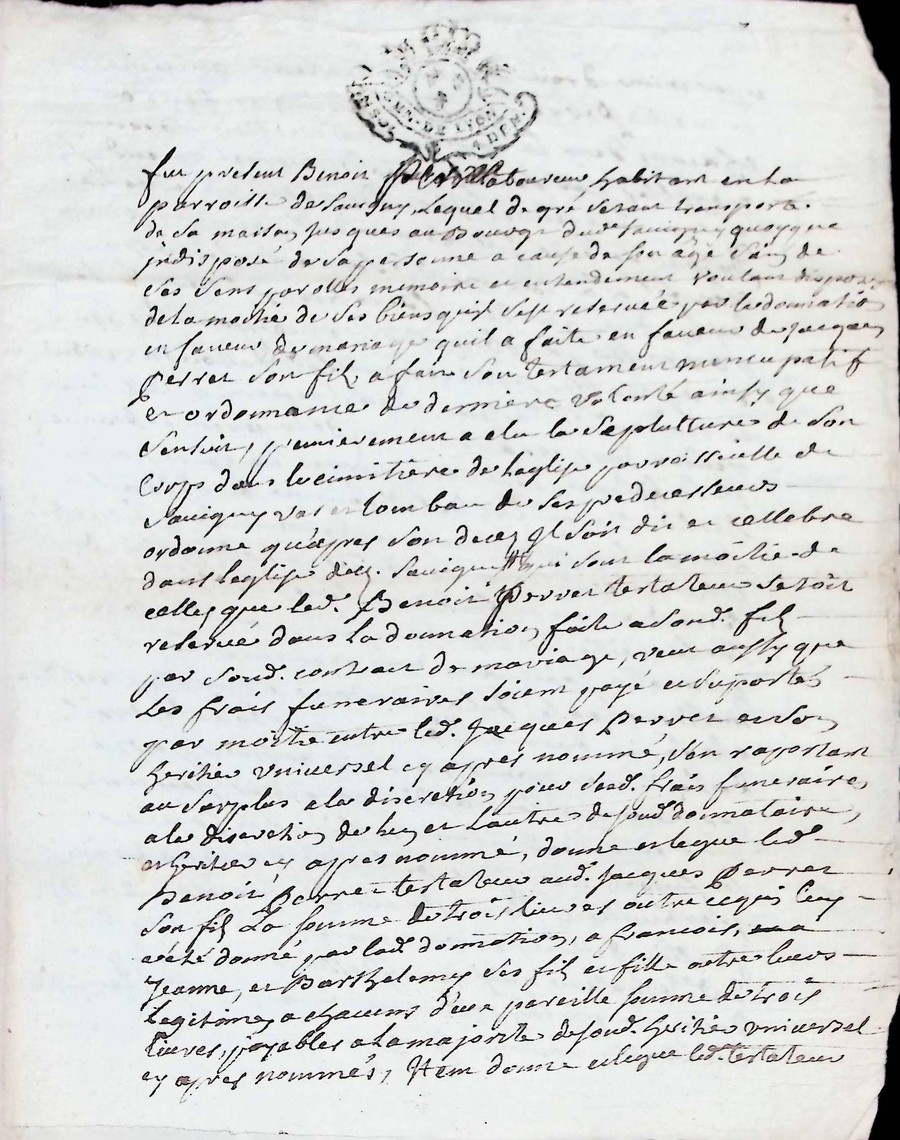 GEN. DE LYON
Fut present Benoit Perret Laboureur habitant en la
parroisse de Savigny, lequel de gré setant transporté
de sa maison jusques au Bourg dud. Savigny quoyque
indisposé de sa personne a cause de son age sain de
ses sens paroles memoire et entendement voulant disposer
de la moitié de ses biens quil sest reservée par la donnation
en faveur de mariage quil a faite en faveur de Jacques
Perret son fils, a fait son testament nuncupatif
et ordonnance de derniere volonté ainsy que
sensuit, premierement a elu la sepulture de son
corps dans le cimitière de leglise paroissielle de
Savigny vas et tombau de ses predecesseurs
ordonne quapres son decez Il soit dit et cellebré
dans leglise dud. Savigny qui sont la moitié de
celles que led. Benoit Perret testateur setoit
reservé dans la donnation faite a sond. fils
par sond. contract de mariage, veut aussy que
les frais funeraires soient payé et suportés
par moitié entre led. Jacques Perret et son
heritier universel cy apres nommé, sen raportant
au surplus a la discretion pour sesd. frais funeraires
a la discretion de lun et lautre de sond. donnataire,
et heritier cy apres nommé, donne et legue led.
Benoit Perret testateur aud. Jacques Perret
son fils la somme de trois livres outre ce qui luy
a été donné par lad. donnation, a francois,
Jeanne, et Barthelemy ses fils et fille outre leurs
legitimes a chacuns d'eux pareille somme de trois
livres, payables a la majorité de sond. heritier universel
cy apres nommés, Item donne et legue led. testateur